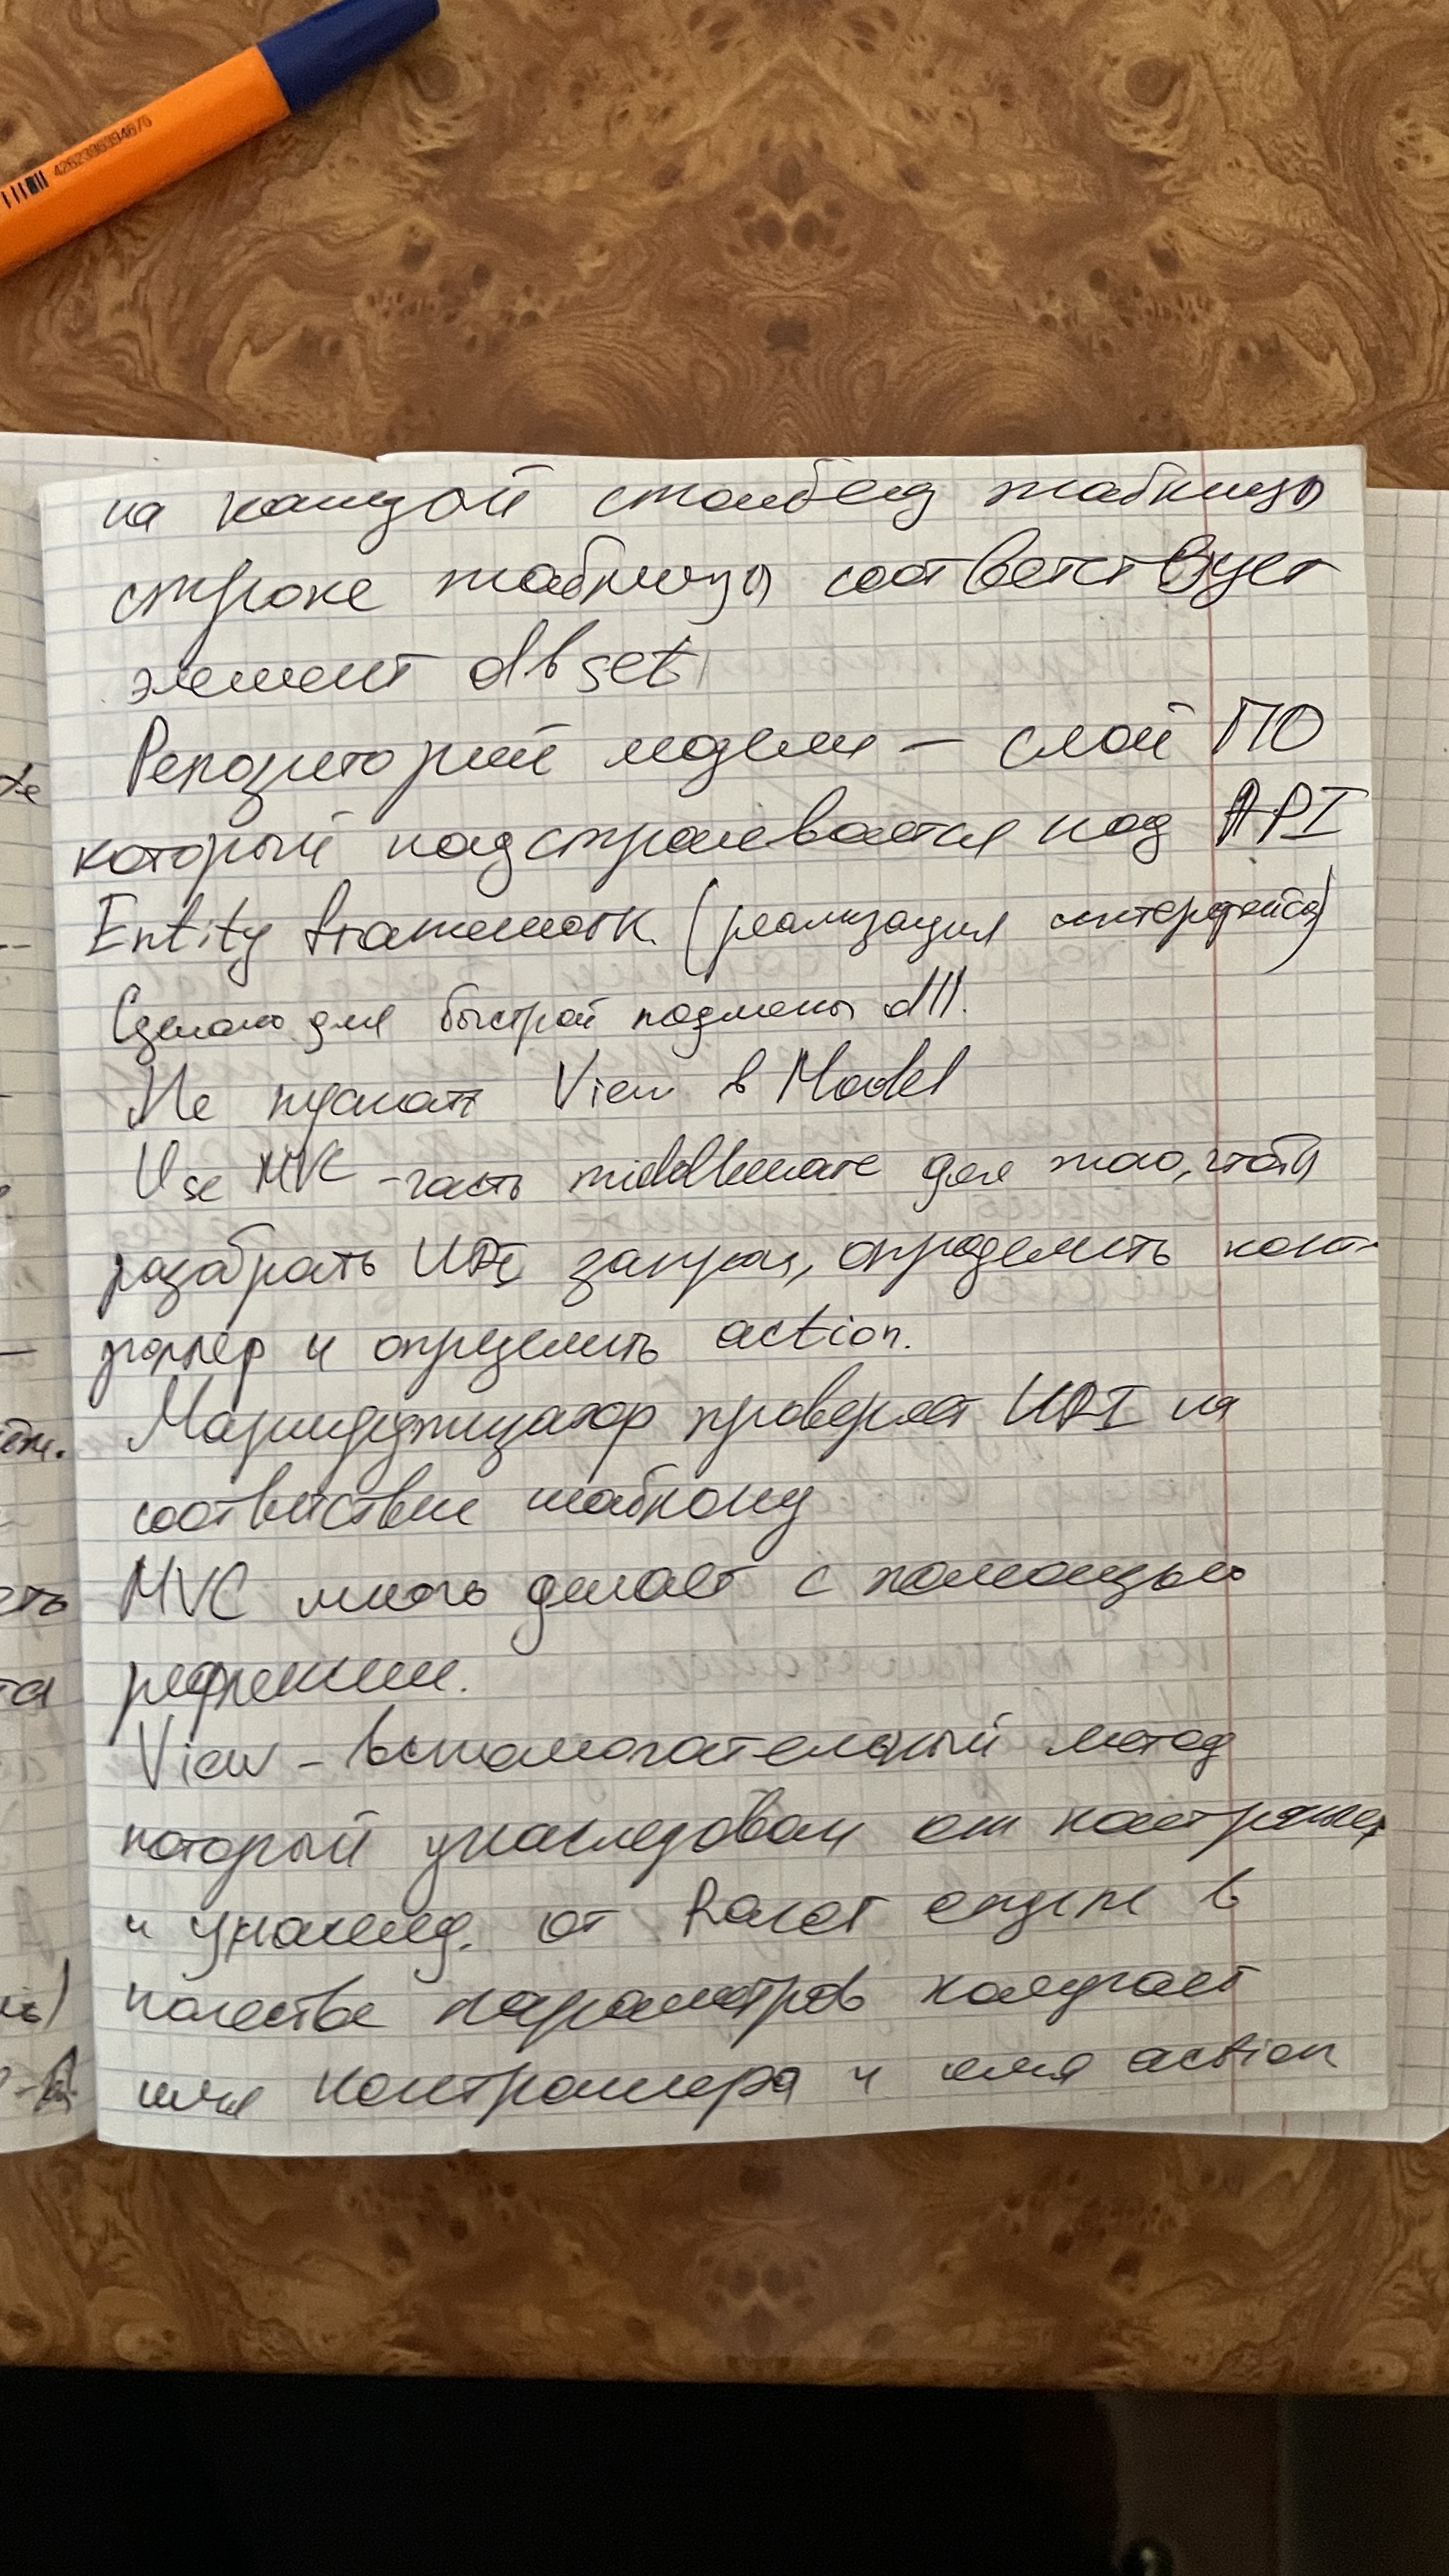 4262396394670
на каждой столбец таблицы
строке таблицы соответствует
элемент dbset
Репозиторий модели — слой ПО
который надстраивается над API
Entity framework. (реализация интерфейса)
Сделано для быстрой подмены dll.
Не пускать View в Model
Use MVC - часть middleware для того, чтобы
разобрать URI запроса, определить конт-
роллер и определить action.
Маршрутизатор проверяет URI на
соответствие шаблону
MVC много делает с помощью
рефлексии.
View - вспомогательный метод
который унаследован от контроллер
и унаслед. от Razor engine в
качестве параметров получает
имя контроллера и имя action